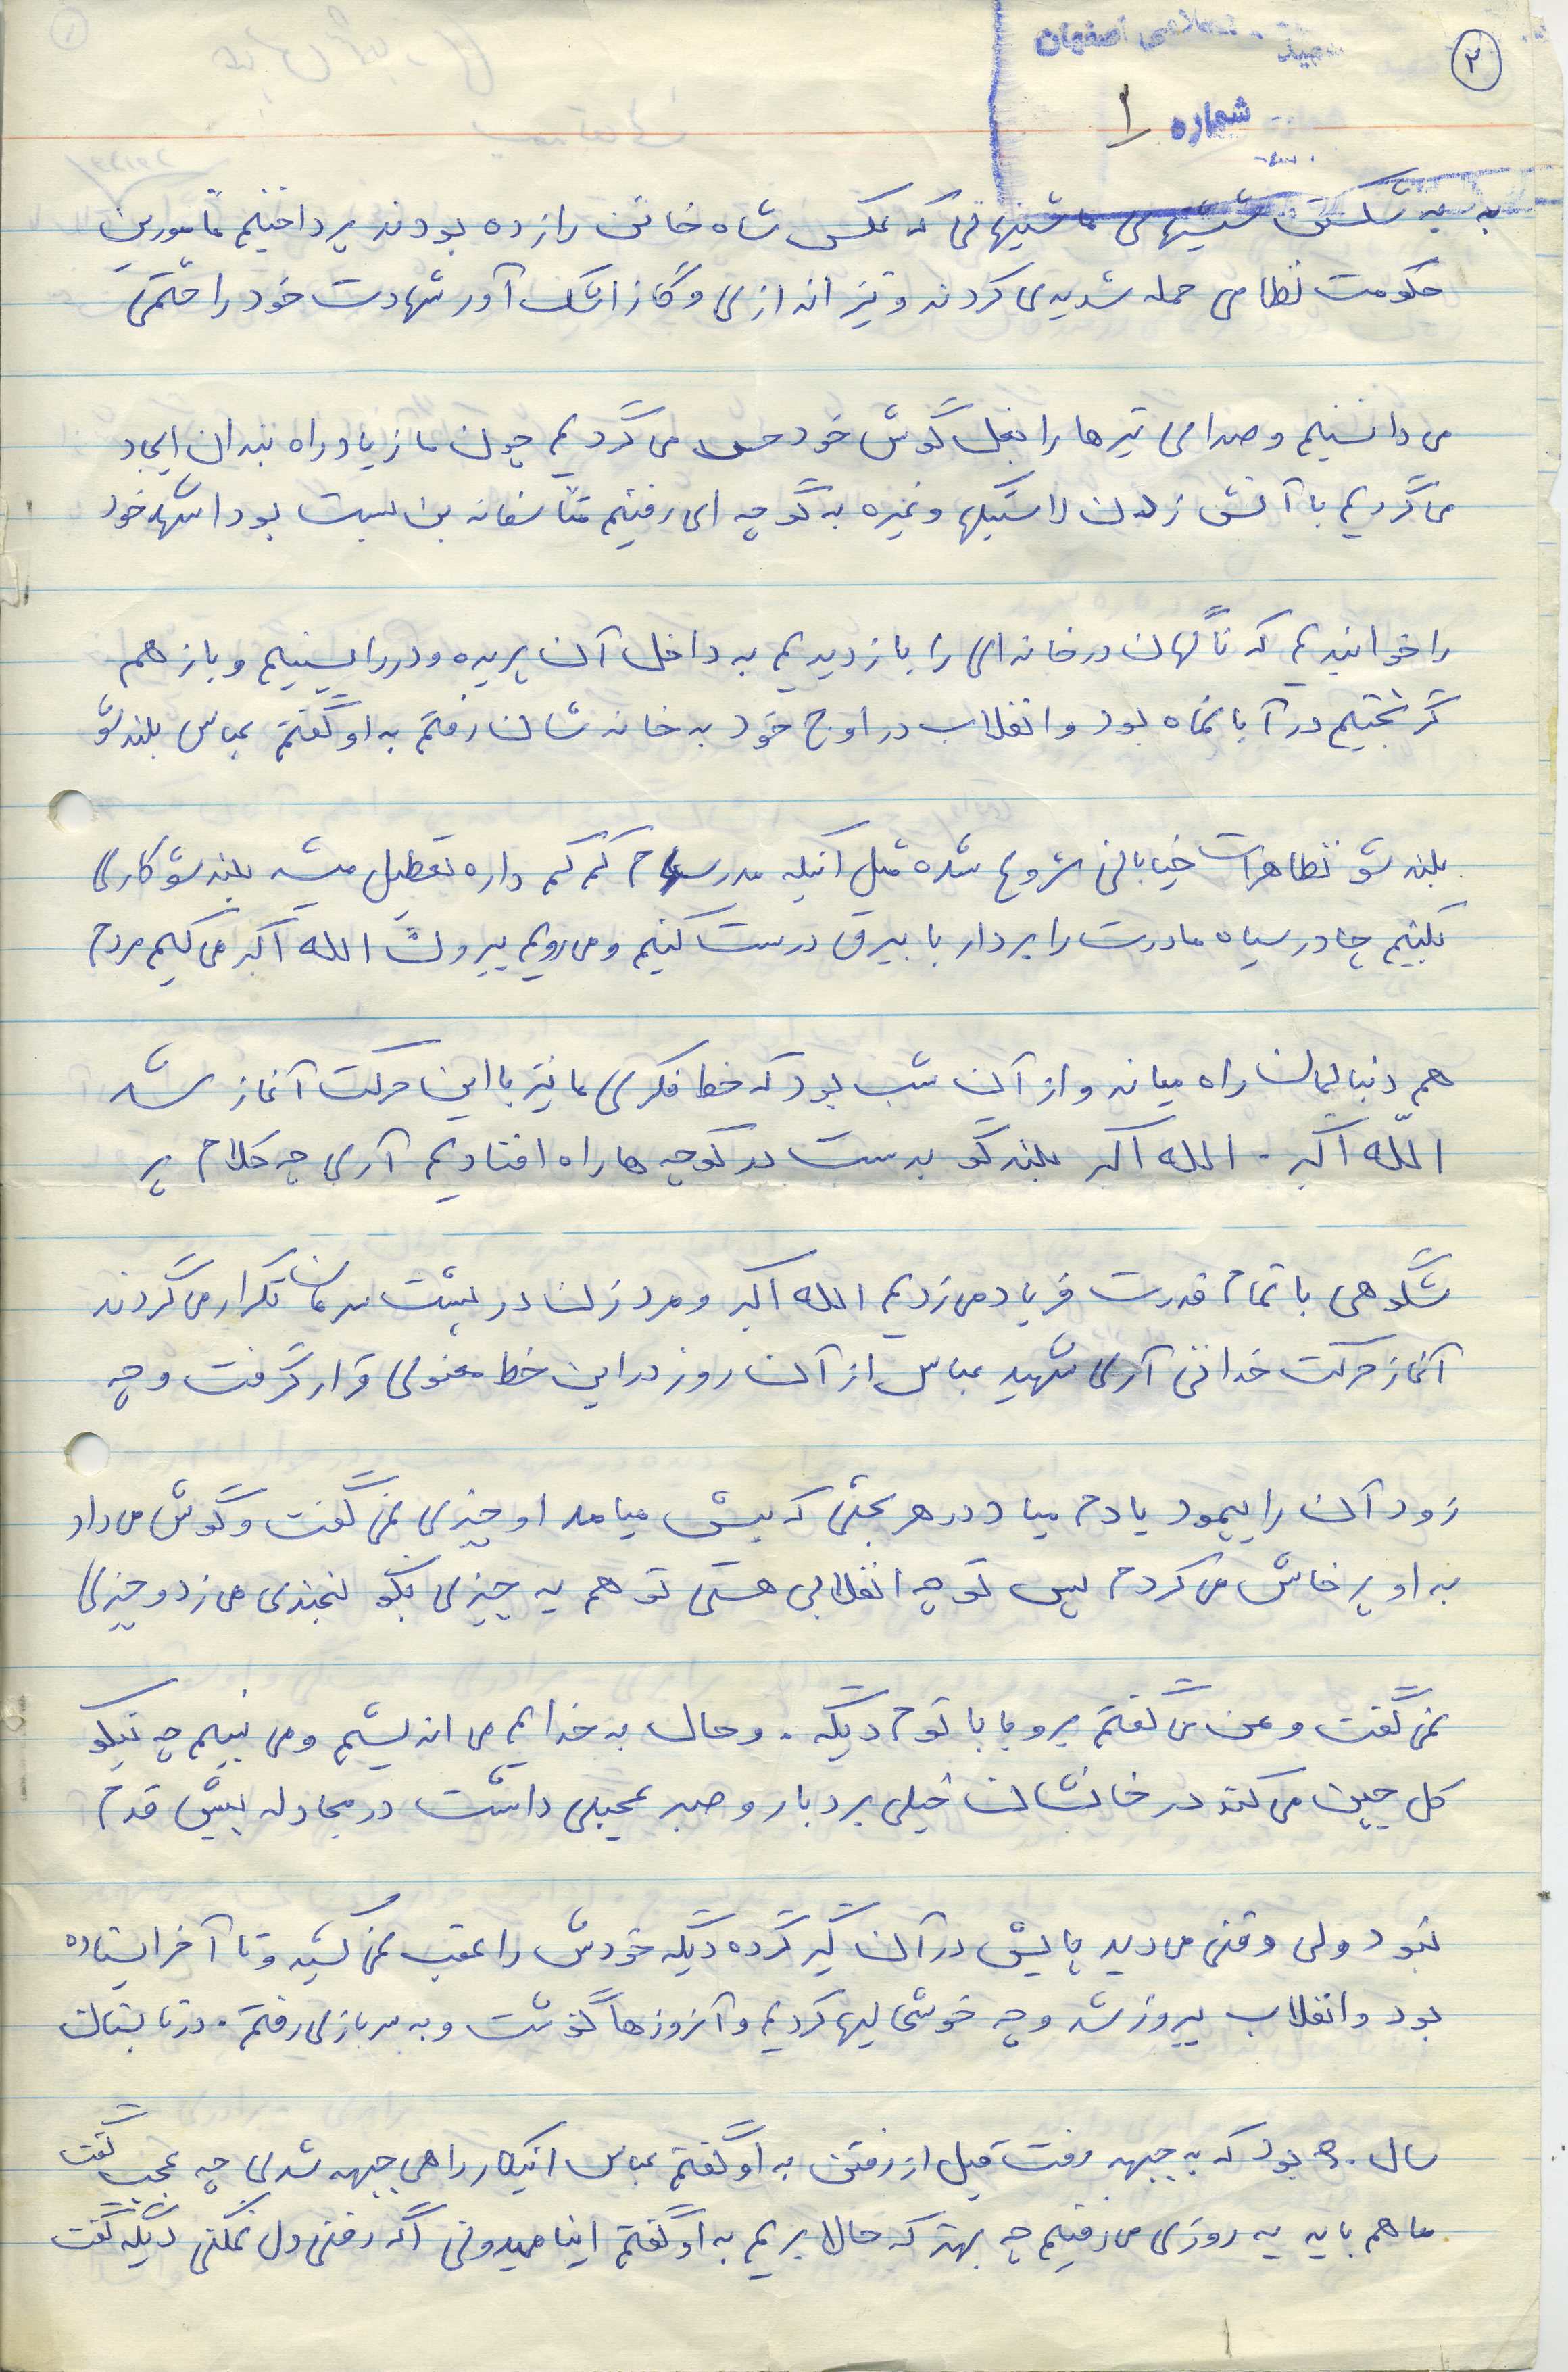 ۲
اصفهان
شماره ۱
به به شکستن شیشهای ماشینهائی که عکس شاه خائن را زده بودند پرداختیم مأمورین
حکومت نظامی حمله شدیدی کردند و تیراندازی و گاز اشک آور شهادت خود را حتمی
می دانستیم و صدای تیرها را بغل گوش خود حس می کردیم چون ما زیاد راه بندان ایجاد
می کردیم با آتش زدن لاستیکها و غیره به کوچه ای رفتیم متأسفانه بن بست بود اشهد خود
را خواندیم که ناگهان در خانه ای را باز دیدیم به داخل آن پریده و در را بستیم و باز هم
گریختیم در آبانماه بود و انقلاب در اوج خود به خانه شان رفتم به او گفتم عباس بلند شو
بلند شو تظاهرات خیابانی شروع شده مثل اینکه مدرسه هام کم کم داره تعطیل میشه بلند شو کاری
بکنیم چادر سیاه مادرت را بردار با بیرق درست کنیم و می رویم بیرون الله اکبر می گیم مردم
هم دنبالمان راه میانه و از آن شب بود که خط فکری ما نیز با این حرکت آغاز شد
الله اکبر - الله اکبر بلندگو بدست در کوچه ها راه افتادیم آری چه کلام پر
شکوهی با تمام قدرت فریاد می زدیم الله اکبر و مرد زن در پشت سرمان تکرار می کردند
آغاز حرکت خدائی آری شهید عباس از آن روز در این خط معنوی قرار گرفت و چه
زود آن را پیمود یادم میاد در هر بحثی که پیش میامد او چیزی نمی گفت و گوش می داد
به او پرخاش می کردم پس تو چه انقلابی هستی تو هم یه چیزی بگو لبخندی می زد و چیزی
نمی گفت و من می گفتم برو بابا توم دیگه . و حال به خدایم می اندیشم و می بینم چه نیکو
گل چین می کند در خانشان خیلی بردبار و صبر عجیبی داشت در مجادله پیش قدم
نبود ولی وقتی می دید پایش در آن گیر کرده دیگه خودش را عقب نمی کشید و تا آخر ایستاده
بود و انقلاب پیروز شد و چه خوشحالیها کردیم و آنروزها گذشت و به سربازی رفتم . در تابستان
سال ۶۰ بود که به جبهه رفت قبل از رفتن به او گفتم عباس اینکار راهی جبهه شدی چه عجب گفت
ما هم باید یه روزی می رفتیم چه بهتر که حالا بریم به او گفتم اینا میدونی اگه رفتی ول نمکنی دیگه گفت